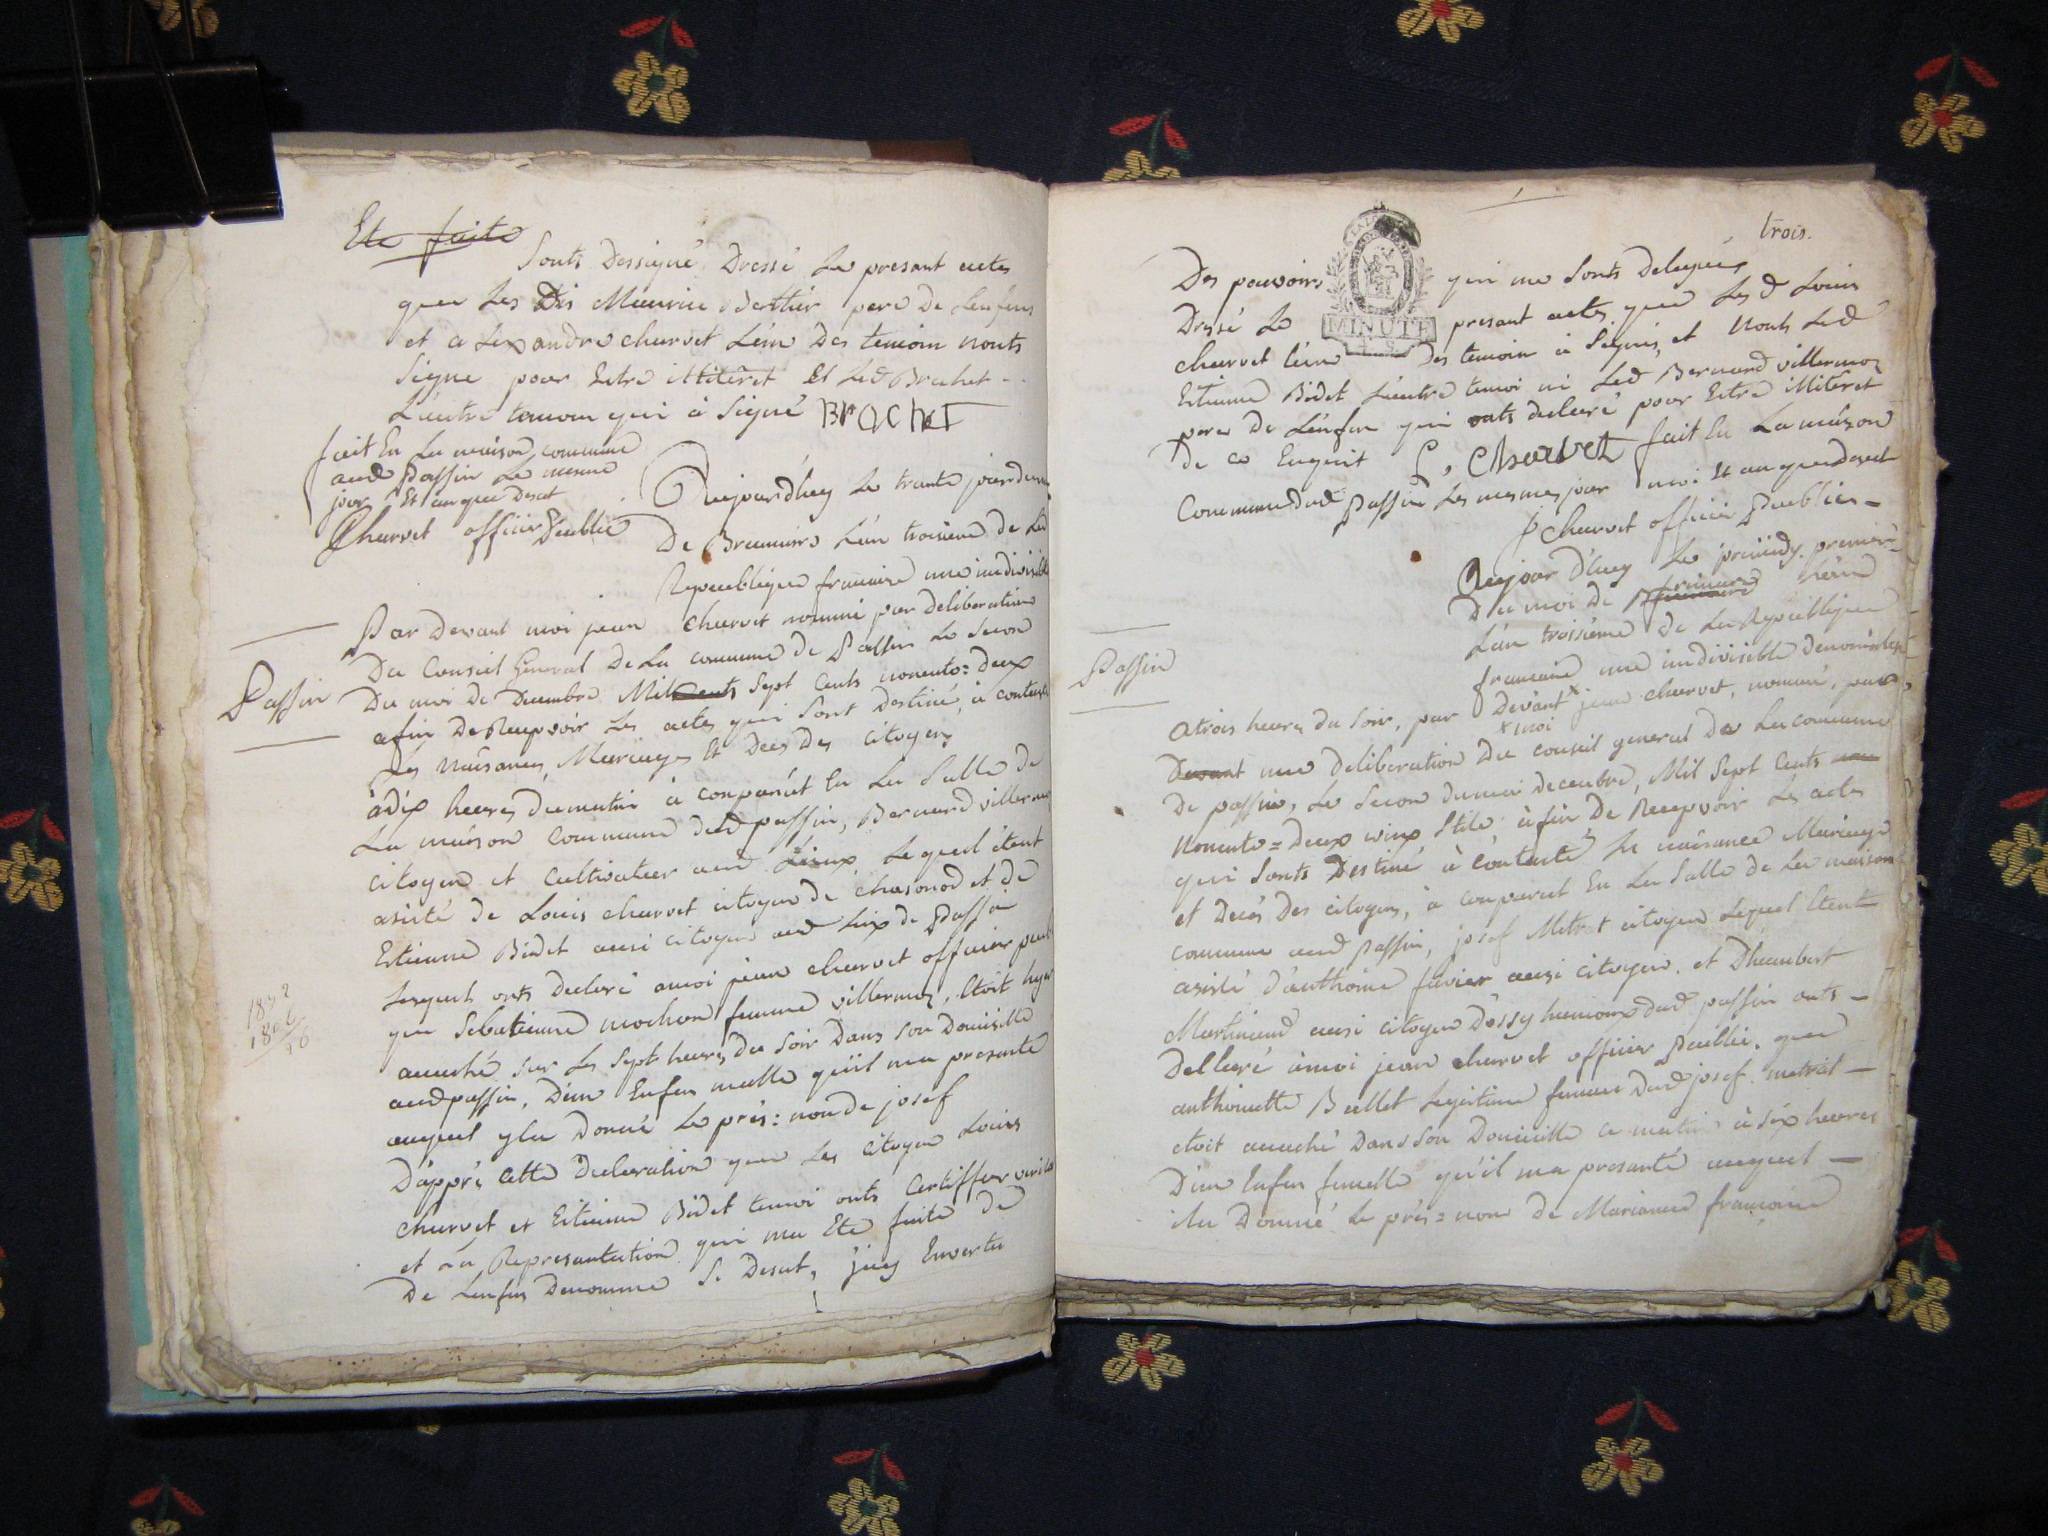 Ete faite
Sonts Dessigné Dressé Le presant actes
que Les Dis Maurice Berthier pere De Lenfens
et alexandre charvet L'ún Des temoin nonts
Signe pour Estre illiteret Et Led Brachet
L'autre temoin qui à Signé BrACHET
fait En La maison commune
aud Passin Le mesme
jour Et an que Desut
Charvet officier Publie
Aujourd'huy Le trante jour du moi
De Brumaire L'an troisieme de La
Republique francaise une indivisible
Par Devant moi jean charvet nommé par deliberation
Du Conseil General De La commune de Passin Le Secon
Passin
Du moi de Decembre Mil cents Sept Cents nonente = deux
afin De Recepvoir Les actes qui Sont Destiné, à contenté
Les naisances, Mariages Et Deces Des citoyens
à dix heures du matin à conparut En La Salle de
La maison Commune dud passin, Bernard villermoz
citoyen et cultivateur aud Lieux Lequel étent
asisté de Louis charvet citoyen de chasonod et de
Etienne Bidet ausi citoyen aud Lieux de Passin
Lesquels onts declaré amoi jean charvet officier publi
que Sebatienne mochon femme villermoz, Etoit hyer
acuché sur Les Sept heures du Soir Dans son Domicille
aud passin, D'une Enfen malle qu'il ma presanté
1892
1806
86
auquel yla Donné Le pres: non de josef
D'apprés cette Declaration que Les citoyen Louis
charvet et Etienne Bidet temoi onts Certiffier
et a La Representation qui ma Ete faite de
De Lenfen Denommé S. Desut, j'ay Envertu
trois.
Des pouvoirs qui me Sonts Delegués
Dressé Le presant actes que Les d Louis
MINUTE
charvet L'úne Des temoin à Signés, et nonts Led
Etienne Bidet L'autre temoi ni Led Bernard villermoz
pere De L'énfen qui onts declaré pour Estre illiteret
De ce Enquit L, Charvet fait En La maison
Commune dud Passin Les mesmes jour moi Et an que desut
j charvet officier Publie
Aujour D'huy Le primidy premier
Du moi de frimaire
L'an troisiéme de La Republique
francaise une indivisible
Passin
atrois heures du Soir, par Devant x jean charvet, nommé, par
x moi
Devant une deliberation Du conseil general De La commune
De passin, Le Secon du moi decembre, Mil Sept Cents
nonente = deux vieux Stile, àfin De Recepvoir Les actes
qui Sonts Destiné à Contenté Les naisance Mariage
et Decés Des citoyens, à conparut En La Salle de La maison
commune aud Passin, josef Metrat citoyen Lequel Etent
asisté d'anthoine favier ausi citoyen, et D'humbert
Martinand ausi citoyen D'ossy hameaux dud passin onts
Dellaré àmoi jean charvet officier Publie, que
anthoinette Ballet Legitime femme Dud josef metrat
etoit acuché Dans son Domicille ce matin à Six heures
D'une Enfen femelle qu'il ma presanté auquel
ila Donné Le prés = non de Marianne francoise